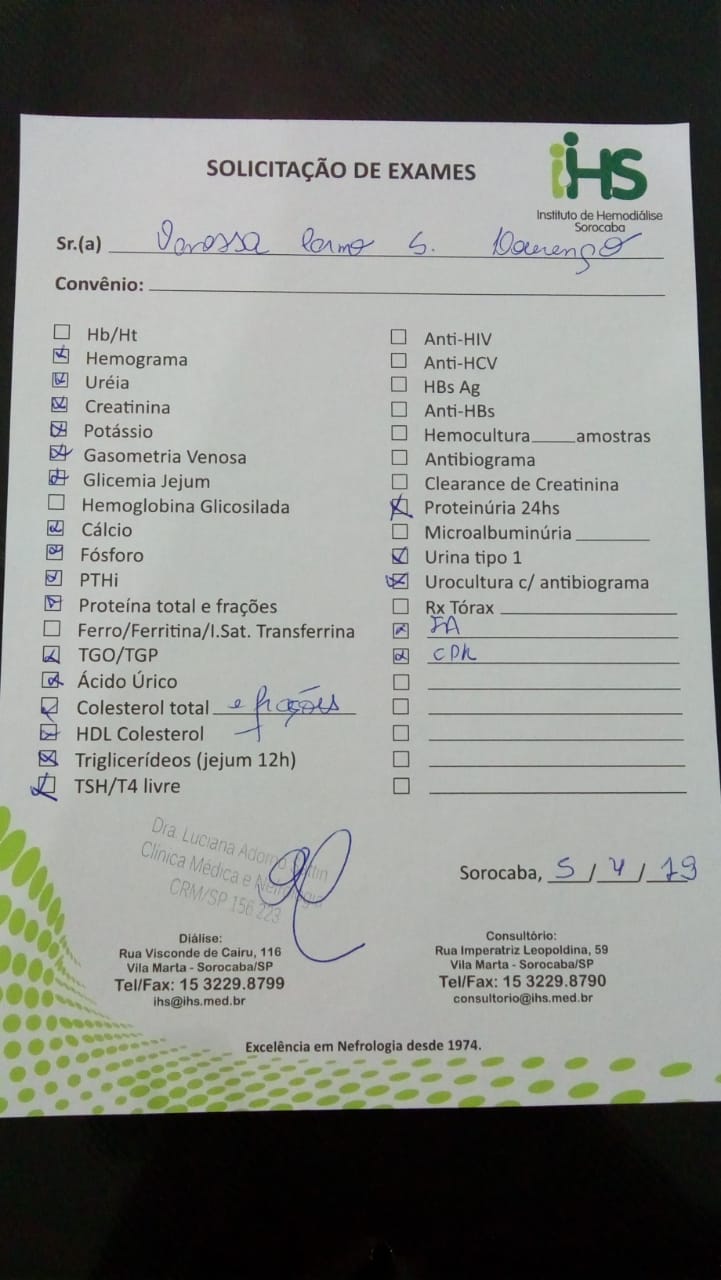 SOLICITAÇÃO DE EXAMES
iHS
Instituto de Hemodiálise
Sorocaba
Sr.(a) Vanessa Carmo S. Lourenço
Convênio:
Hb/Ht
Hemograma
Uréia
Creatinina
Potássio
Gasometria Venosa
Glicemia Jejum
Hemoglobina Glicosilada
Cálcio
Fósforo
PTHi
Proteína total e frações
Ferro/Ferritina/I.Sat. Transferrina
TGO/TGP
Ácido Úrico
Colesterol total e frações
HDL Colesterol
Triglicerídeos (jejum 12h)
TSH/T4 livre
Anti-HIV
Anti-HCV
HBs Ag
Anti-HBs
Hemocultura_____amostras
Antibiograma
Clearance de Creatinina
Proteinúria 24hs
Microalbuminúria ________
Urina tipo 1
Urocultura c/ antibiograma
Rx Tórax
FA
CPK
Dra. Luciana Adorno
Clínica Médica e
CRM/SP 156 223
Sorocaba, 5 / 4 / 19
Diálise:
Rua Visconde de Cairu, 116
Vila Marta - Sorocaba/SP
Tel/Fax: 15 3229.8799
ihs@ihs.med.br
Consultório:
Rua Imperatriz Leopoldina, 59
Vila Marta - Sorocaba/SP
Tel/Fax: 15 3229.8790
consultorio@ihs.med.br
Excelência em Nefrologia desde 1974.